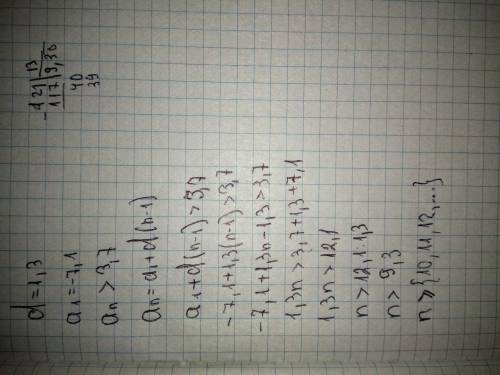 d=1,3
a1=-7,1
an>3,7
an=a1+d(n-1)
a1+d(n-1)>3,7
-7,1+1,3(n-1)>3,7
-7,1+1,3n-1,3>3,7
1,3n>3,7+1,3+7,1
1,3n>12,1
n>12,1:1,3
n>9,3
n⩾{10,11,12,...}
-121|13
117|9,30
40
39